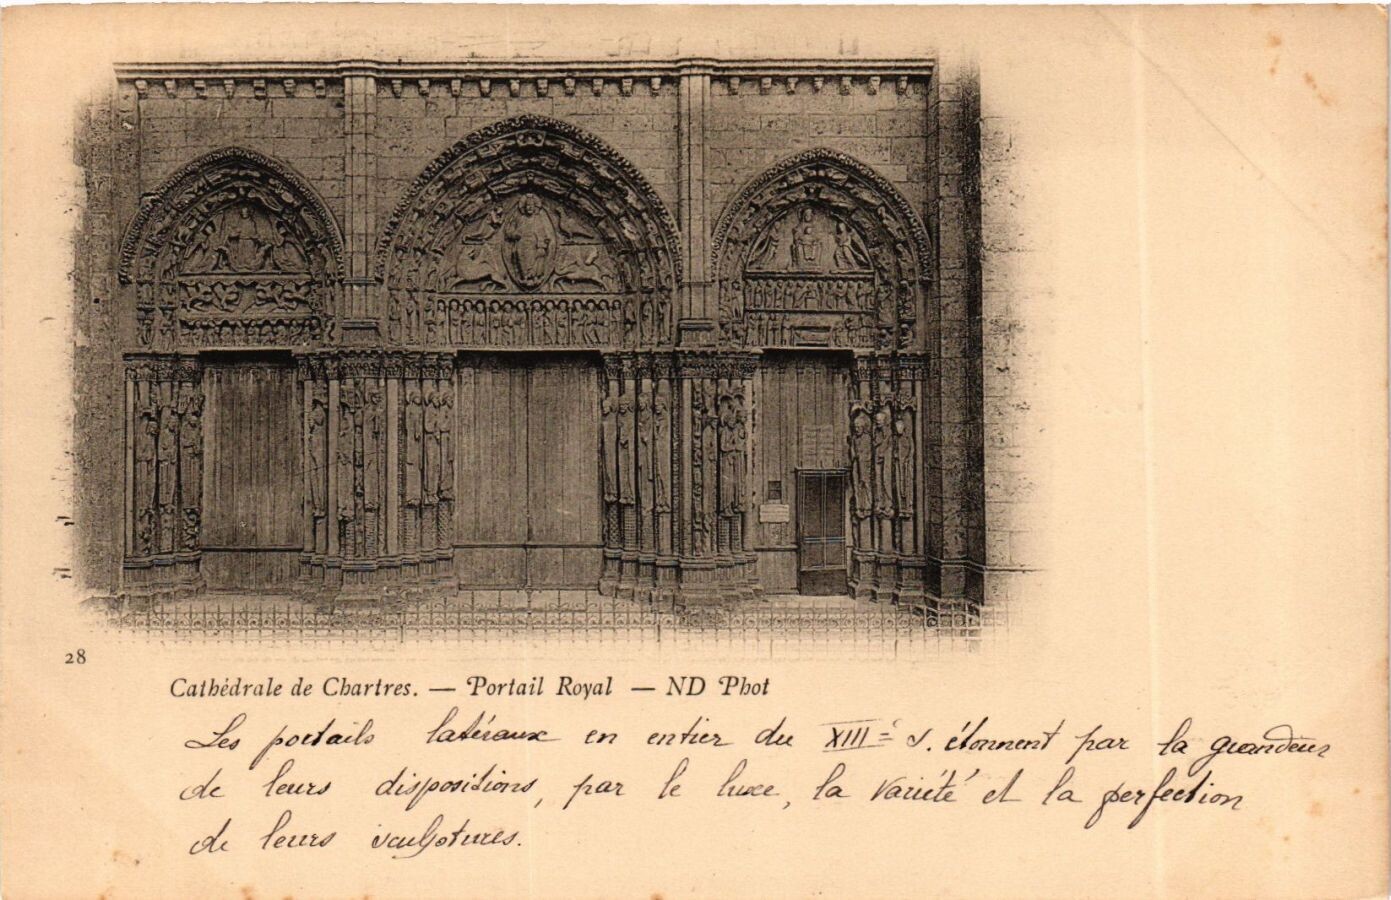 28
Cathédrale de Chartres. — Portail Royal — ND Phot
Les portails latéraux en entier du XIIIe s. étonnent par la grandeur
de leurs dispositions, par le luxe, la variété et la perfection
de leurs sculptures.